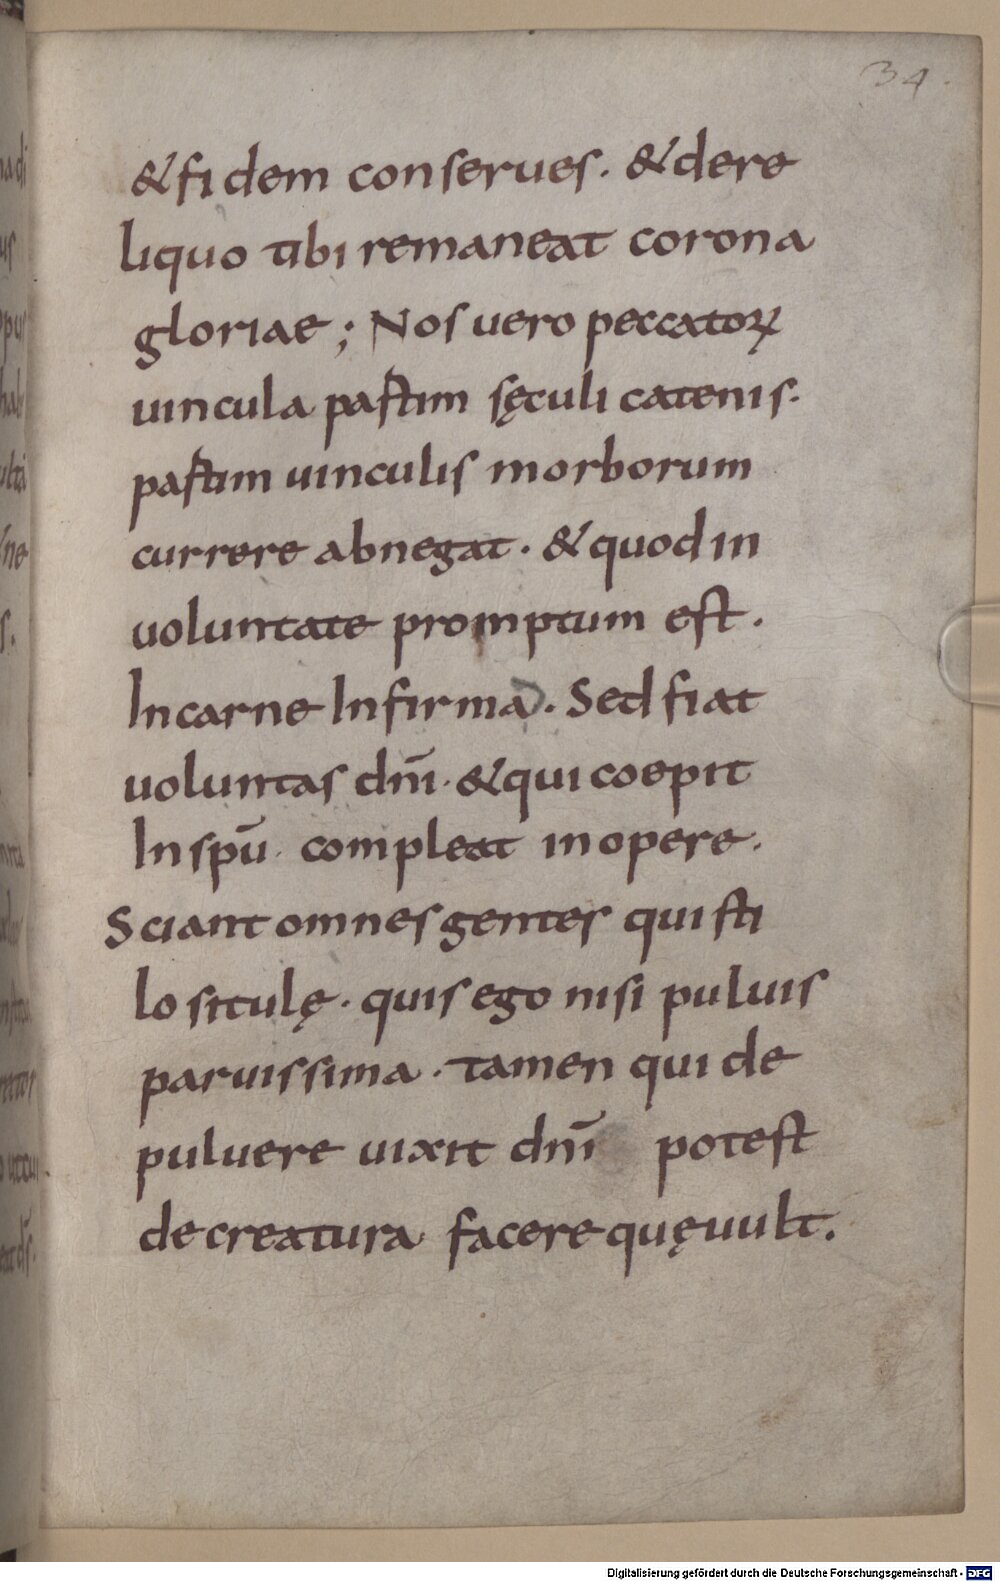 34.
& fidem conserues. & dere
liquo tibi remaneat corona
gloriae; Nos uero peccatoꝝ
uincula pastim sęculi catenis.
pastim uinculis morborum
currere abnegat. & quod in
uoluntate promptum est.
In carne Infirma. Sed fiat
uoluntas dn̄i. & qui coepit
In spū. compleat in opere.
Sciant omnes gentes qui sti
lo situlę. quis ego nisi puluis
paruissima. tamen qui de
puluere uixit dn̄i potest
de creatura facere quę uult.
Digitalisierung gefördert durch die Deutsche Forschungsgemeinschaft - DFG